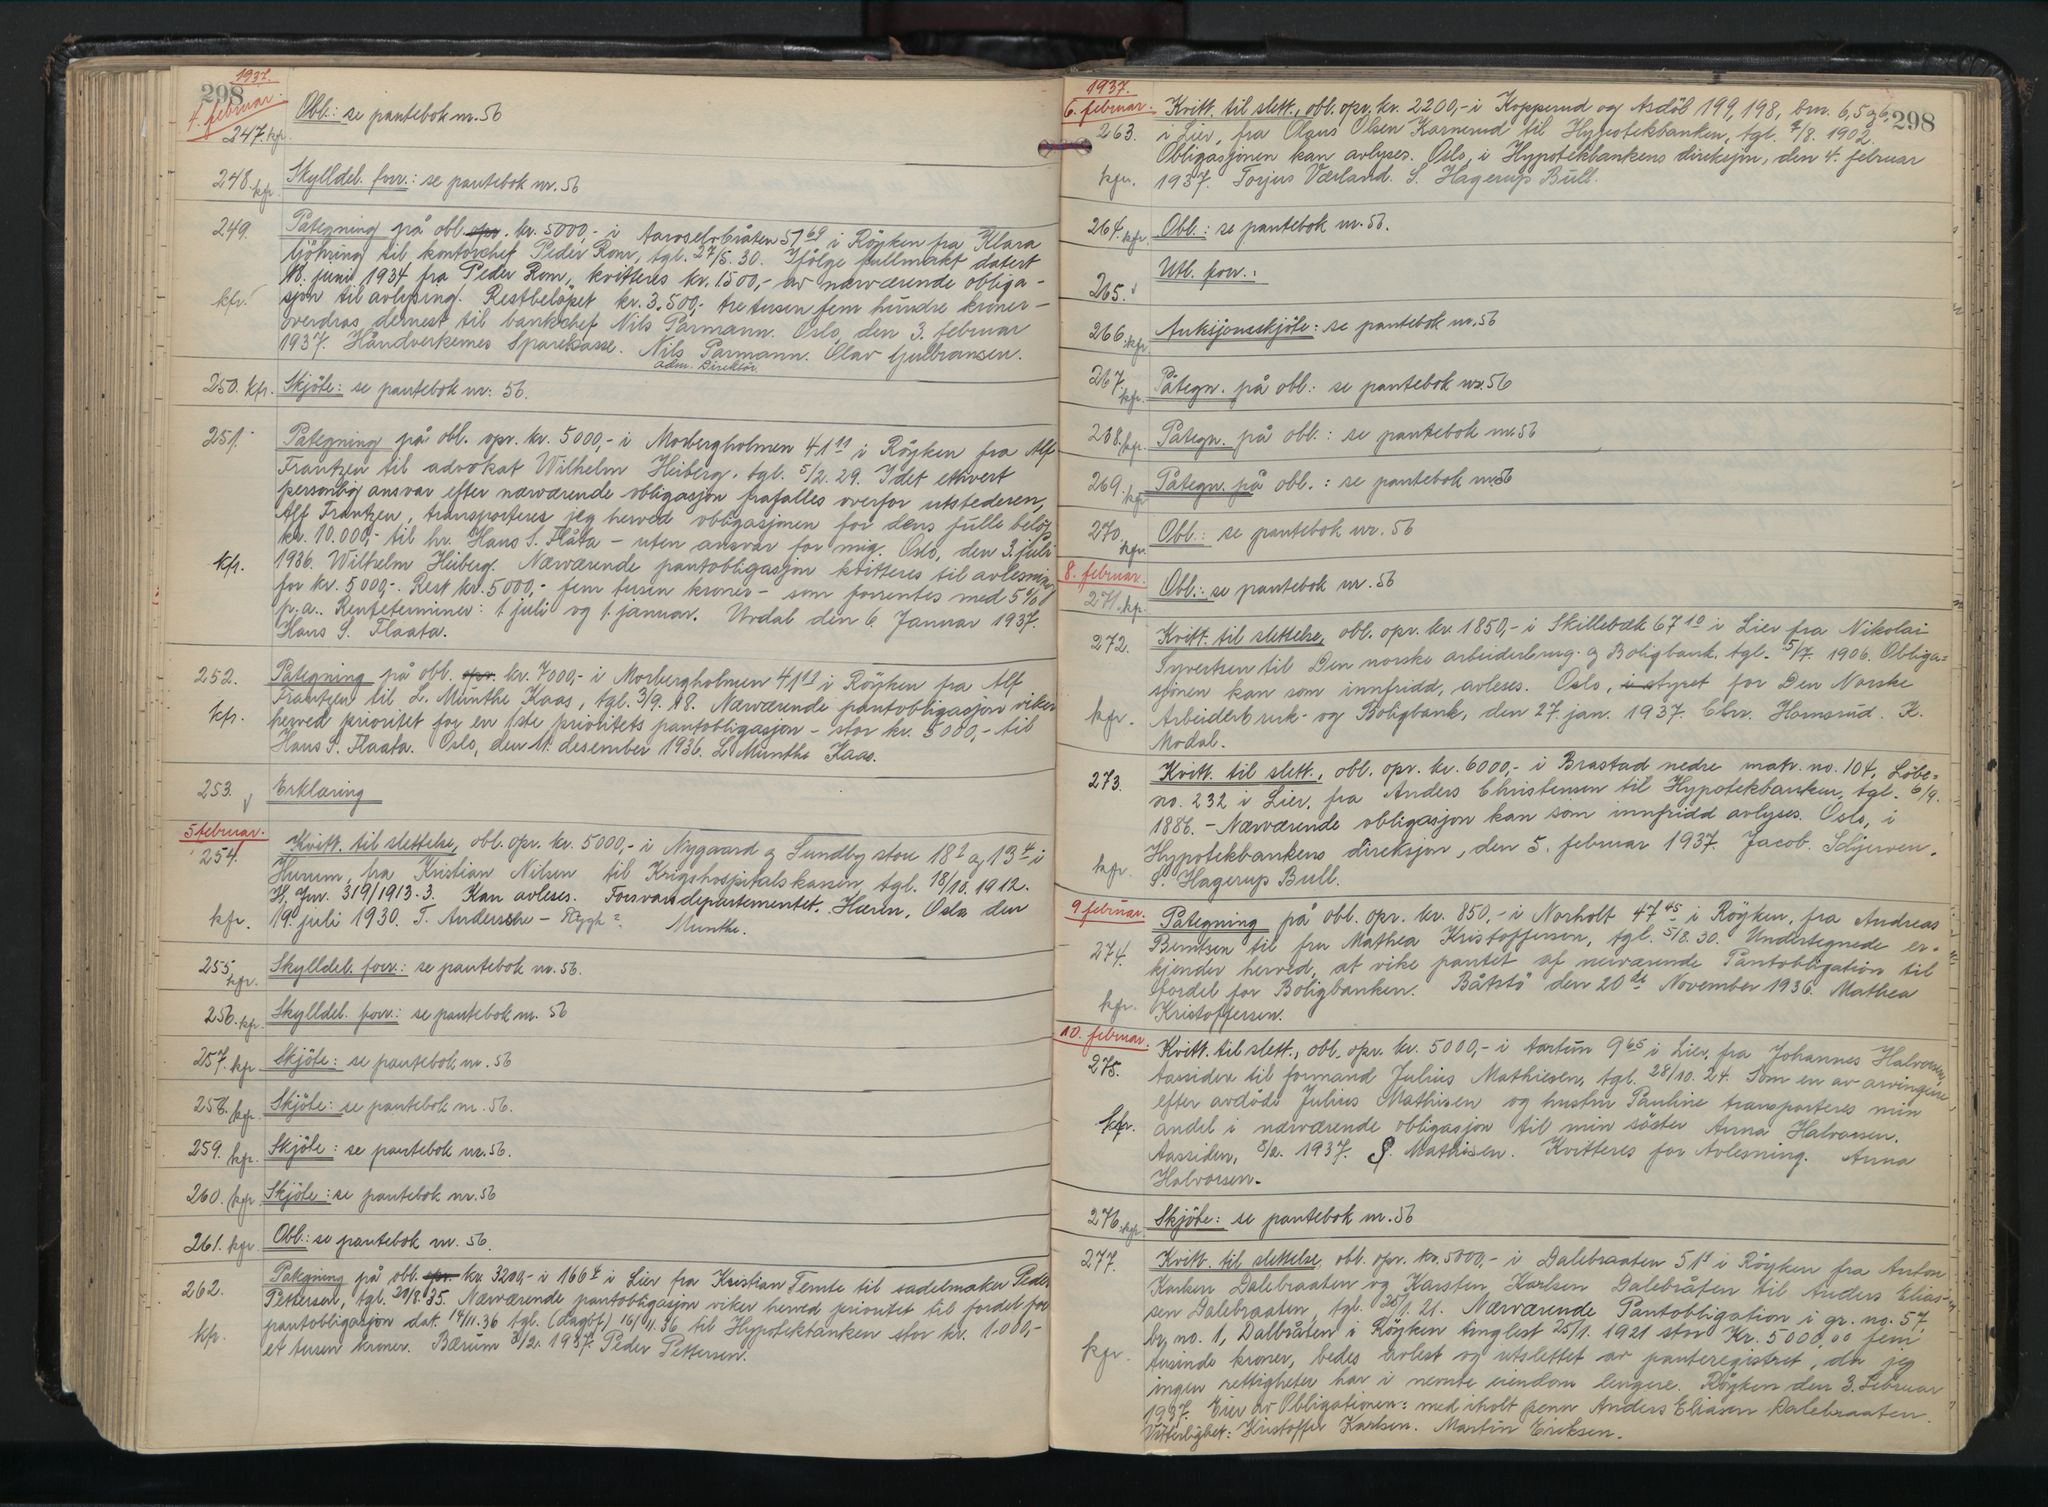 298
1937.
4. februar.
247. kfr. Obl.: se pantebok nr. 56
248. kfr. Skylldel. forr.: se pantebok nr. 56
249. Påtegning på obl. opr. kr. 5000,- i Aaroselvbråten 57 69 i Röyken fra Klara
Gjöhring til kontorchef Peder Rom, tgl. 27/5.30. Ifölge fullmakt datert
18. juni 1934 fra Peder Rom, kvitteres kr. 1500,- av nærværende obliga-
kfr. sjon til avlysing. Restbelöpet kr. 3.500,- tre tusen fem hundre kroner -
overdras dernest til bankchef Nils Parmann. Oslo, den 3. februar
1937. Håndverkernes Sparekasse. Nils Parmann. Olav Gulbransen.
adm. Direktör.
250. kfr. Skjöte: se pantebok nr. 56.
251. Påtegning på obl. opr. kr. 5000,- i Morbergholmen 41 11 i Röyken fra Alf
Frantzen til advokat Wilhelm Heiberg, tgl. 5/2. 29. Idet ethvert
personlig ansvar efter nærværende obligasjon frafalles overfor utstederen,
Alf Frantzen, transporteres jeg herved obligasjonen for dens fulle belöp
kr. 10.000,- til hr. Hans S. Flåta - uten ansvar for mig. Oslo, den 3. juli
kfr. 1936. Wilhelm Heiberg. Nærværende pantobligasjon kvitteres til avlesning
for kr. 5000,-. Rest kr. 5000,- fem tusen kroner - som forrentes med 5%
p.a. Renteterminer: 1 juli og 1. januar. Uvdal den 6. Januar 1937.
Hans S. Flaata.
252. Påtegning på obl. opr. kr. 7000,- i Morbergholmen 41 11 i Röyken fra Alf
Frantzen til L. Munthe Kaas, tgl. 3/9. 18. Nærværende pantobligasjon viker
kfr. herved prioritet for en 1ste prioritets pantobligasjon - stor kr. 5000,- til
Hans S. Flaata. Oslo, den 11. desember 1936. L. Munthe Kaas.
253. Erklæring
5 februar.
254. Kvitt. til slettelse, obl. opr. kr. 5000,- i Nygaard og Sundby store 18 1 og 13 4 i
Hurum, fra Kristian Nilsen til Krigshospitalskassen, tgl. 18/10. 1912.
H. Jnr. 319/1913. 3. Kan avleses. Forsvarsdepartementet. Hæren, Oslo den
kfr. 19. juli 1930. T. Anderssen - Munthe.
255. kfr. Skylldel. forr.: se pantebok nr. 56.
256. kfr. Skylldel. forr.: se pantebok nr. 56
257. kfr Skjöte: se pantebok nr. 56
258. kfr. Skjöte: se pantebok nr. 56.
259. kfr. Skjöte: se pantebok nr. 56.
260. kfr Skjöte: se pantebok nr. 56
261. kfr Obl.: se pantebok nr. 56.
262. Påtegning på obl. opr. kr. 3200,- i 166 4 i Lier fra Kristian Temte til sadelmaker Peder
Pettersen, tgl. 29/8. 35. Nærværende pantobligasjon viker herved prioritet til fordel for
pantobligasjon dat. 14/11.36 tgl. (dagbf.) 16/11.36 til Hypotekbanken stor kr. 1.000,-
kfr. et tusen kroner. Bærum 3/2. 1937. Peder Pettersen.
298
1937.
6. februar. Kvitt. til slett., obl. opr. kr. 2200,- i Kopperud og Asdöl 199, 198, bnr. 6, 5 og 6,
263. i Lier, fra Olaus Olsen Karnerud til Hypotekbanken, tgl. 7/8. 1902.
Obligasjonen kan avlyses. Oslo, i Hypotekbankens direksjon, den 4. februar
kfr. 1937. Torjus Værland. S. Hagerup Bull.
264. kfr. Obl.: se pantebok nr. 56.
265. Utl. forr.:
266. kfr Auksjonsskjöte: se pantebok nr. 56
267. kfr. Påtegn. på obl.: se pantebok nr. 56
268. kfr. Påtegn. på obl.: se pantebok nr. 56
269. kfr Påtegn. på obl.: se pantebok nr. 56
270. kfr. Obl.: se pantebok nr. 56
8. februar.
271. kfr. Obl.: se pantebok nr. 56
272. Kvitt. til slettelse, obl. opr. kr. 1850,- i Skillebæk 67 10 i Lier fra Nikolai
Syvertsen til Den norske arbeiderbrug. og Boligbank, tgl. 5/7. 1906. Obliga=
sjonen kan som innfridd, avleses. Oslo, i styret for Den Norske
kfr. Arbeiderbruk- og Boligbank, den 27. jan. 1937. Chr. Hamsrud. K.
Modal.
273. Kvitt. til slett., obl. opr. kr. 6000,- i Brastad nedre matr. no. 104, Löbe=
no. 232 i Lier, fra Anders Christensen til Hypotekbanken, tgl. 6/9.
1886. - Nærværende obligasjon kan som innfridd avlyses. Oslo, i
kfr. Hypotekbankens direksjon, den 5. februar 1937. Jacob. Schjerven.
S. Hagerup Bull.
9 februar. Påtegning på obl. opr. kr. 850,- i Norholt 47 45 i Röyken, fra Andreas
274. Berntsen til fru Mathea Kristoffersen, tgl. 5/8. 30. Undertegnede er-
kjender herved, at vike pantet af nærværende Pantobligation til
fordel for Boligbanken. Båtstö den 20 de November 1936. Mathea
kfr. Kristoffersen.
10. februar. Kvitt. til slett., obl. opr. kr. 5000,- i Aartun 9 65 i Lier, fra Johannes Halvorsen,
275. Aassiden til formand Julius Mathiesen, tgl. 28/10. 24. Som en av arvingene
efter avdöde Julius Mathisen og hustru Pauline transporteres min
kfr. andel i nærværende obligasjon til min söster Anna Halvorsen.
Aassiden, 8/2. 1937. S. Mathisen. Kvitteres for Avlesning. Anna
Halvorsen.
276. kfr. Skjöte: se pantebok nr. 56
277. Kvitt. til slettelse, obl. opr. kr. 5000,- i Dalebraaten 57 1 i Röyken fra Anton
Karlsen Dalebraaten og Karsten Karlsen Dalebråten til Anders Elias-
sen Dalebraaten, tgl. 26/1. 21. Nærværende Pantobligation i gr. no. 57.
br. no. 1, Dalbråten i Röyken tinglest 25/1. 1921 stor Kr. 5000,00 fem
kfr. tusinde kroner, bedes avlest og utslettet av panteregistret, da jeg
ingen rettigheter har i nevnte eiendom lengere. Röyken den 3. Februar
1937. Eier av Obligationen: med iholt penn Anders Eliasen Dalebraaten.
Vitterlighet: Kristoffer Karlsen. Martin Eriksen.